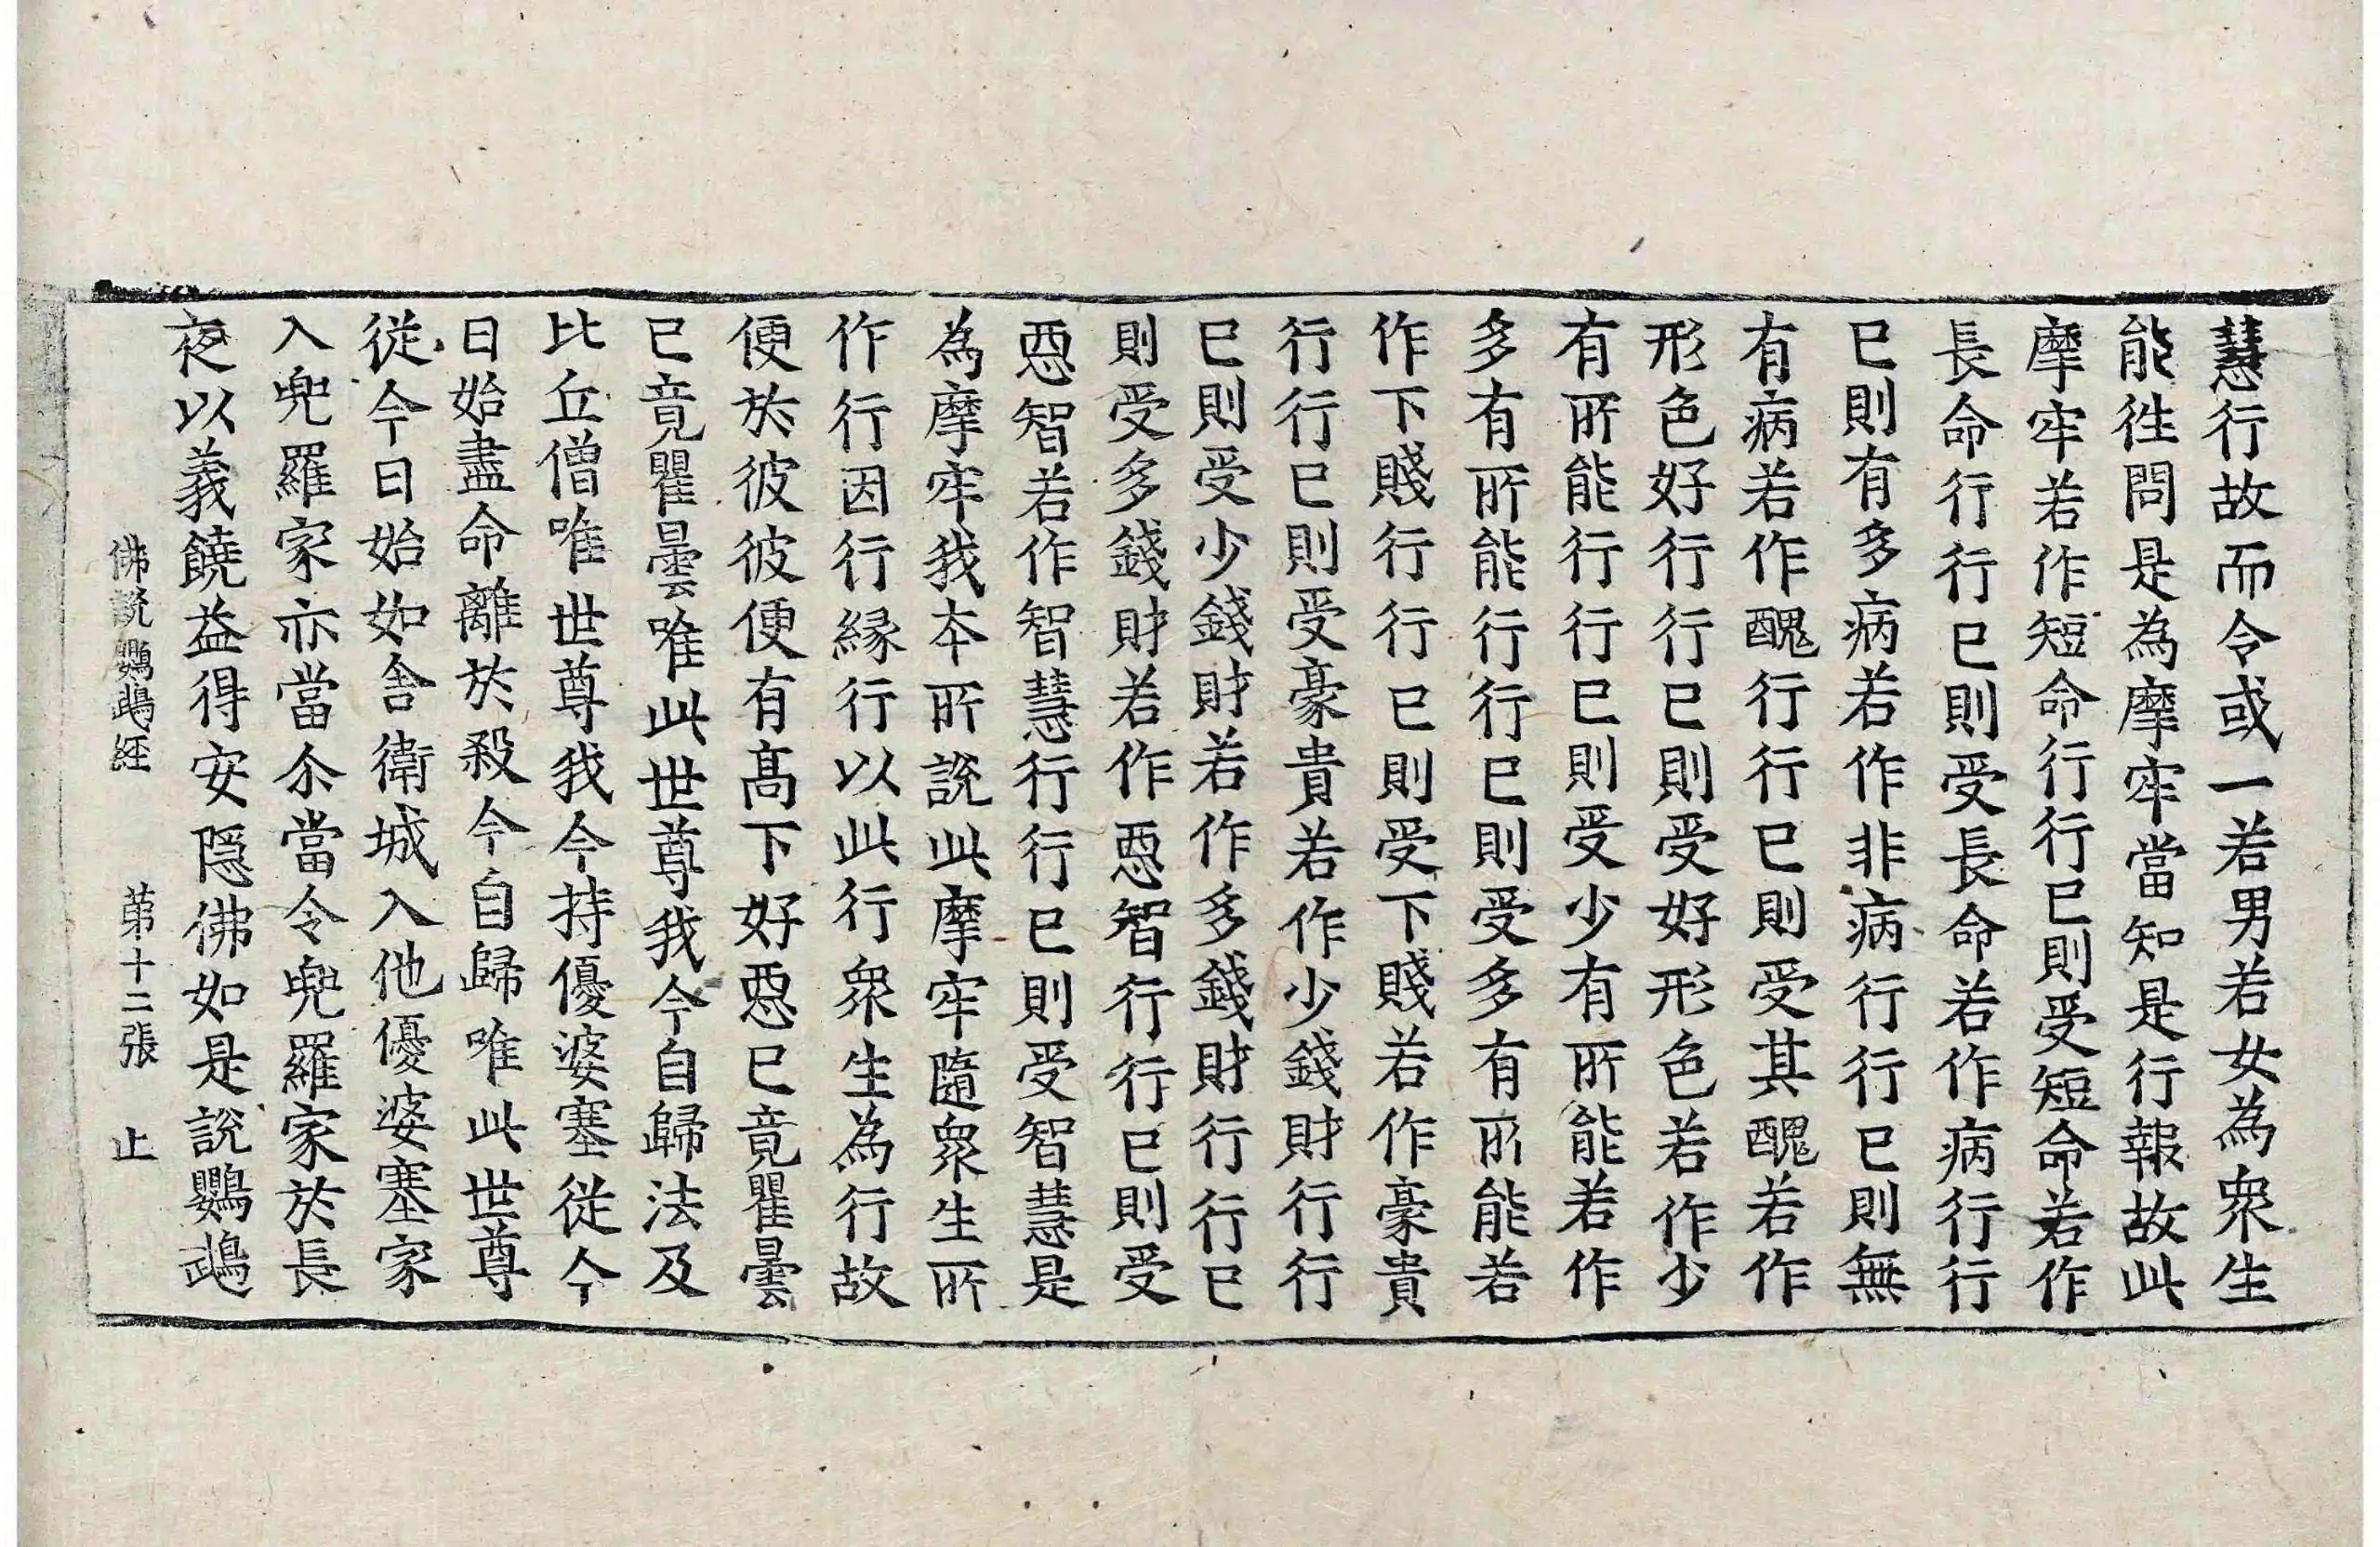 慧行故而令或一若男若女為衆生
能徃問是為摩牢當知是行報故此
摩牢若作短命行行已則受短命若作
長命行行已則受長命若作病行行
已則有多病若作非病行行已則無
有病若作醜行行已則受其醜若作
形色好行行已則受好形色若作少
有所能行行已則受少有所能若作
多有所能行行已則受多有所能若
作下賤行行已則受下賤若作豪貴
行行已則受豪貴若作少錢財行行
已則受少錢財若作多錢財行行已
則受多錢財若作惡智行行已則受
惡智若作智慧行行已則受智慧是
為摩牢我本所說此摩牢隨衆生所
作行因行緣行以此行衆生為行故
便於彼彼便有髙下好惡已竟瞿曇
已竟瞿曇唯此世尊我今自歸法及
比丘僧唯世尊我今持優婆塞從今
日始盡命離於殺今自歸唯此世尊
從今日始如舍衛城入他優婆塞家
入兜羅家亦當尒當令兜羅家於長
夜以義饒益得安隱佛如是說鸚鵡
佛說鸚鵡經 苐十二張 止